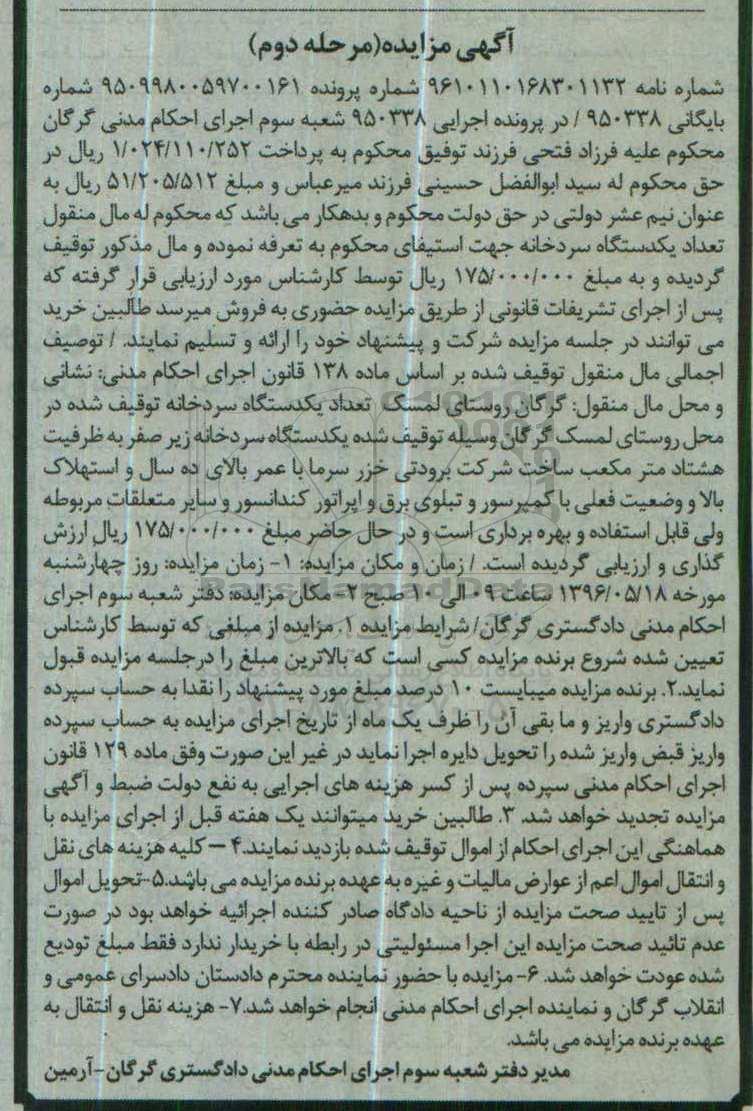 آگهی مزایده(مرحله دوم)
شماره نامه ۹۶۱۰۱۱۰۱۶۸۳۰۱۱۳۲ شماره پرونده ۹۵۰۹۹۸۰۰۵۹۷۰۰۱۶۱ شماره
بایگانی ۹۵۰۳۳۸ / در پرونده اجرایی ۹۵۰۳۳۸ شعبه سوم اجرای احکام مدنی گرگان
محکوم علیه فرزاد فتحی فرزند توفیق محکوم به پرداخت ۱/۰۲۴/۱۱۰/۲۵۲ ریال در
حق محکوم له سید ابوالفضل حسینی فرزند میرعباس و مبلغ ۵۱/۲۰۵/۵۱۲ ریال به
عنوان نیم عشر دولتی در حق دولت محکوم و بدهکار می باشد که محکوم له مال منقول
تعداد یکدستگاه سردخانه جهت استیفای محکوم به تعرفه نموده و مال مذکور توقیف
گردیده و به مبلغ ۱۷۵/۰۰۰/۰۰۰ ریال توسط کارشناس مورد ارزیابی قرار گرفته که
پس از اجرای تشریفات قانونی از طریق مزایده حضوری به فروش میرسد طالبین خرید
می توانند در جلسه مزایده شرکت و پیشنهاد خود را ارائه و تسلیم نمایند. / توصیف
اجمالی مال منقول توقیف شده بر اساس ماده ۱۳۸ قانون اجرای احکام مدنی: نشانی
و محل مال منقول: گرگان روستای لمسک تعداد یکدستگاه سردخانه توقیف شده در
محل روستای لمسک گرگان وسیله توقیف شده یکدستگاه سردخانه زیر صفر به ظرفیت
هشتاد متر مکعب ساخت شرکت برودتی خزر سرما با عمر بالای ده سال و استهلاک
بالا و وضعیت فعلی با کمپرسور و تبلوی برق و اپراتور کندانسور و سایر متعلقات مربوطه
ولی قابل استفاده و بهره برداری است و در حال حاضر مبلغ ۱۷۵/۰۰۰/۰۰۰ ریال ارزش
گذاری و ارزیابی گردیده است. / زمان و مکان مزایده: ۱- زمان مزایده: روز چهارشنبه
مورخه ۱۳۹۶/۰۵/۱۸ ساعت ۰۹ الی ۱۰ صبح ۲- مکان مزایده: دفتر شعبه سوم اجرای
احکام مدنی دادگستری گرگان/ شرایط مزایده ۱. مزایده از مبلغی که توسط کارشناس
تعیین شده شروع برنده مزایده کسی است که بالاترین مبلغ را درجلسه مزایده قبول
نماید.۲. برنده مزایده میبایست ۱۰ درصد مبلغ مورد پیشنهاد را نقدا به حساب سپرده
دادگستری واریز و ما بقی آن را ظرف یک ماه از تاریخ اجرای مزایده به حساب سپرده
واریز قبض واریز شده را تحویل دایره اجرا نماید در غیر این صورت وفق ماده ۱۲۹ قانون
اجرای احکام مدنی سپرده پس از کسر هزینه های اجرایی به نفع دولت ضبط و آگهی
مزایده تجدید خواهد شد. ۳. طالبین خرید میتوانند یک هفته قبل از اجرای مزایده با
هماهنگی این اجرای احکام از اموال توقیف شده بازدید نمایند.۴ – کلیه هزینه های نقل
و انتقال اموال اعم از عوارض مالیات و غیره به عهده برنده مزایده می باشد.۵-تحویل اموال
پس از تایید صحت مزایده از ناحیه دادگاه صادر کننده اجرائیه خواهد بود در صورت
عدم تائید صحت مزایده این اجرا مسئولیتی در رابطه با خریدار ندارد فقط مبلغ تودیع
شده عودت خواهد شد. ۶- مزایده با حضور نماینده محترم دادستان دادسرای عمومی و
انقلاب گرگان و نماینده اجرای احکام مدنی انجام خواهد شد.۷- هزینه نقل و انتقال به
عهده برنده مزایده می باشد.
مدیر دفتر شعبه سوم اجرای احکام مدنی دادگستری گرگان-آرمین